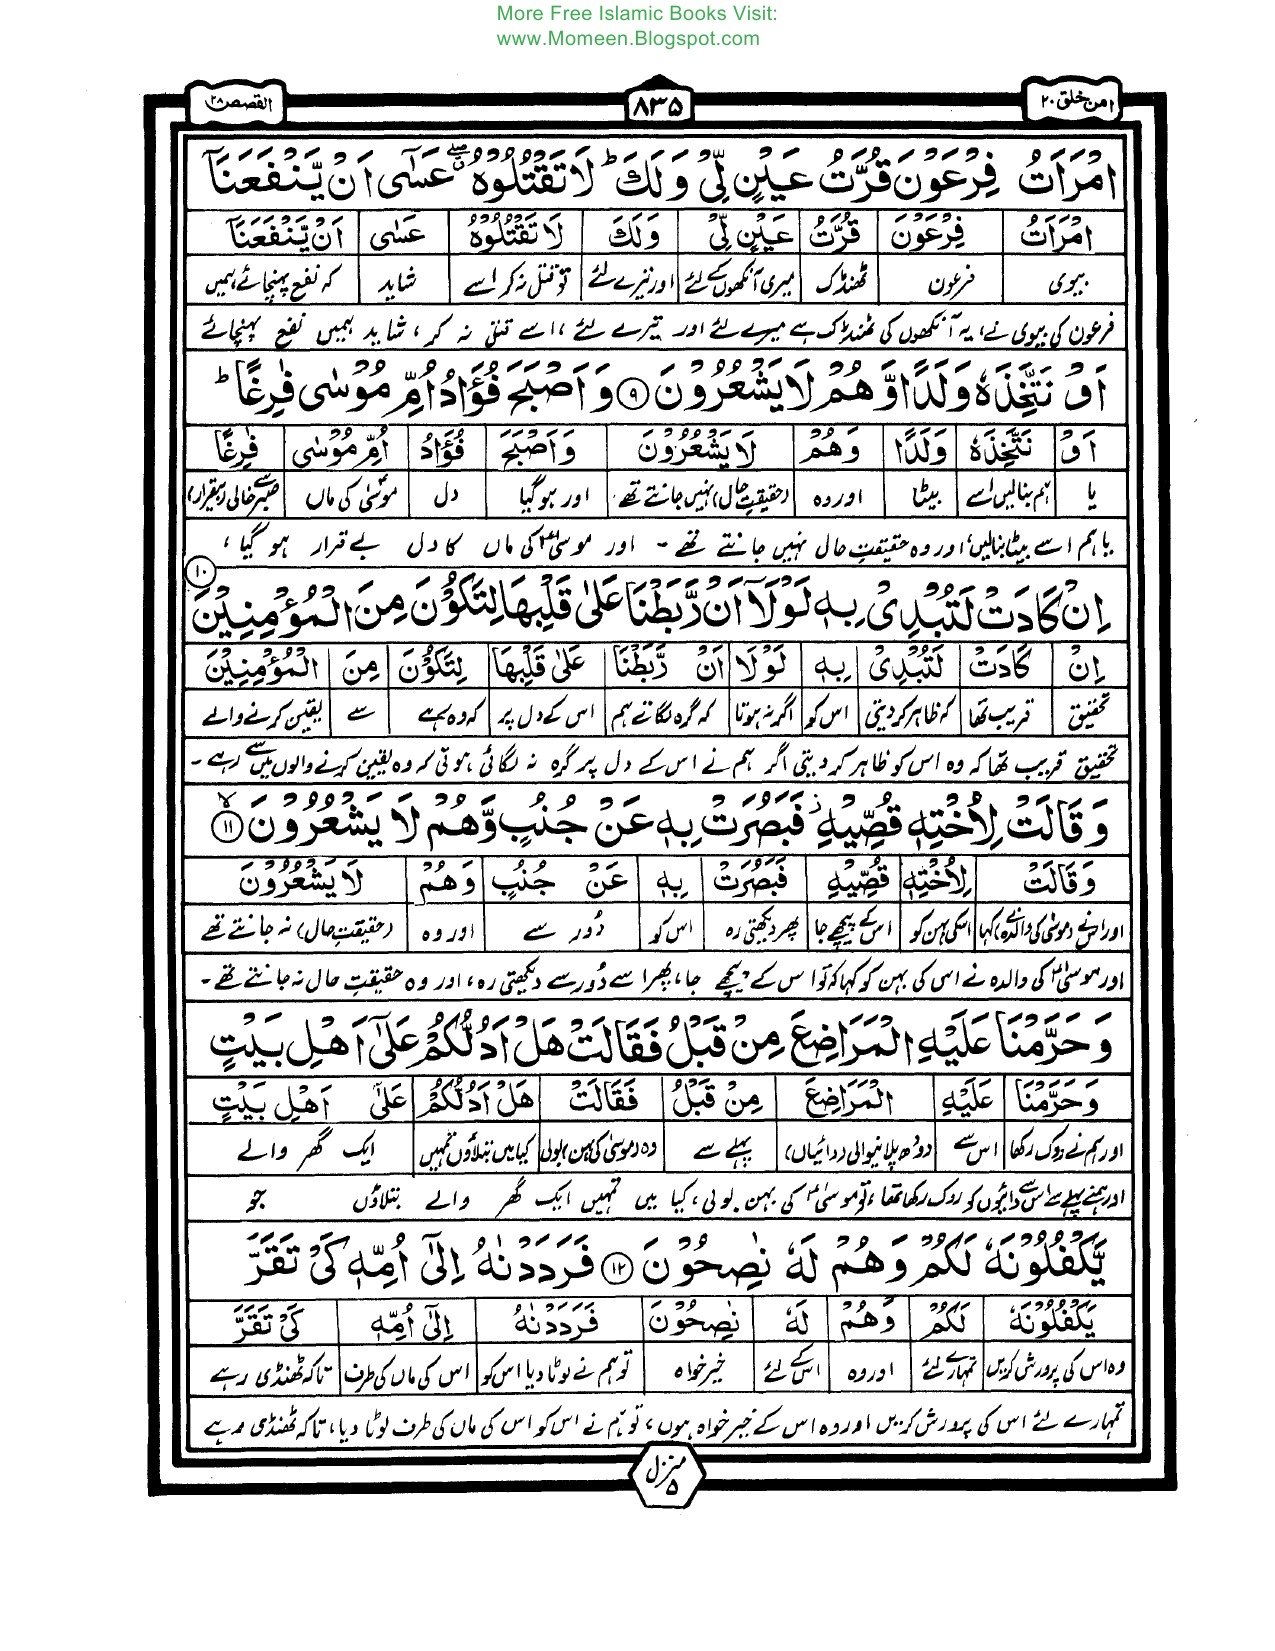 More Free Islamic Books Visit:
www.Momeen.Blogspot.com
امن خلق ۲۰
۸۳۵
القصص ۲۸
امْرَاَتُ فِرْعَوْنَ قُرَّتُ عَيْنٍ لِّيْ وَلَكَ ؕ لَا تَقْتُلُوْهُ ۖۗ عَسٰۤى اَنْ يَّنْفَعَنَاۤ
امْرَاَتُ فِرْعَوْنَ قُرَّتُ عَيْنٍ لِّيْ وَلَكَ لَا تَقْتُلُوْهُ عَسٰى اَنْ يَّنْفَعَنَاۤ
بیوی فرعون ٹھنڈک میری آنکھوں کے لئے اور تیرے لئے تو قتل نہ کر اسے شاید کہ نفع پہنچائے ہمیں
فرعون کی بیوی نے، یہ آنکھوں کی ٹھنڈک ہے میرے لئے اور تیرے لئے، اسے قتل نہ کر، شاید ہمیں نفع پہنچائے
اَوْ نَتَّخِذَهٗ وَلَدًا وَّهُمْ لَا يَشْعُرُوْنَ ۹ وَاَصْبَحَ فُؤَادُ اُمِّ مُوْسٰى فٰرِغًا ؕ
اَوْ نَتَّخِذَهٗ وَلَدًا وَهُمْ لَا يَشْعُرُوْنَ وَاَصْبَحَ فُؤَادُ اُمِّ مُوْسٰى فٰرِغًا
یا ہم بنالیں اسے بیٹا اور وہ (حقیقتِ حال) نہیں جانتے تھے اور ہو گیا دل موسیٰؑ کی ماں صبر سے خالی (بیقرار)
یا ہم اسے بیٹا بنالیں، اور وہ حقیقتِ حال نہیں جانتے تھے - اور موسیٰؑ کی ماں کا دل بے قرار ہو گیا،
اِنْ كَادَتْ لَتُبْدِيْ بِهٖ لَوْلَاۤ اَنْ رَّبَطْنَا عَلٰى قَلْبِهَا لِتَكُوْنَ مِنَ الْمُؤْمِنِيْنَ ۱۰
اِنْ كَادَتْ لَتُبْدِيْ بِهٖ لَوْلَا اَنْ رَّبَطْنَا عَلٰى قَلْبِهَا لِتَكُوْنَ مِنَ الْمُؤْمِنِيْنَ
تحقیق قریب تھا کہ ظاہر کر دیتی اس کو اگر نہ ہوتا کہ گرہ لگاتے ہم اس کے دل پر کہ وہ رہے سے یقین کرنے والے
تحقیق قریب تھا کہ وہ اس کو ظاہر کر دیتی اگر ہم نے اس کے دل پر گرہ نہ لگائی ہوتی کہ وہ یقین کرنے والوں میں سے رہے -
وَقَالَتْ لِاُخْتِهٖ قُصِّيْهِ ز فَبَصُرَتْ بِهٖ عَنْ جُنُبٍ وَّهُمْ لَا يَشْعُرُوْنَ ۱۱ لا
وَقَالَتْ لِاُخْتِهٖ قُصِّيْهِ فَبَصُرَتْ بِهٖ عَنْ جُنُبٍ وَهُمْ لَا يَشْعُرُوْنَ
اور اس نے (موسیٰؑ کی والدہ نے) کہا اسکی بہن کو اس کے پیچھے جا پھر دیکھتی رہ اس کو دُور سے اور وہ (حقیقتِ حال) نہ جانتے تھے
اور موسیٰؑ کی والدہ نے اس کی بہن کو کہا کہ تو اس کے پیچھے جا، پھر اسے دُور سے دیکھتی رہ، اور وہ حقیقتِ حال نہ جانتے تھے -
وَحَرَّمْنَا عَلَيْهِ الْمَرَاضِعَ مِنْ قَبْلُ فَقَالَتْ هَلْ اَدُلُّكُمْ عَلٰۤى اَهْلِ بَيْتٍ
وَحَرَّمْنَا عَلَيْهِ الْمَرَاضِعَ مِنْ قَبْلُ فَقَالَتْ هَلْ اَدُلُّكُمْ عَلٰۤى اَهْلِ بَيْتٍ
اور ہم نے روک رکھا اس سے دودھ پلانیوالی (دائیاں) پہلے سے وہ (موسیٰؑ کی بہن) بولی کیا میں بتلاؤں تمہیں ایک گھر والے
اور ہمنے پہلے سے اس سے دائیوں کو روک رکھا تھا، تو موسیٰؑ کی بہن بولی، کیا میں تمہیں ایک گھر والے بتلاؤں جو
يَّكْفُلُوْنَهٗ لَكُمْ وَهُمْ لَهٗ نٰصِحُوْنَ ۱۲ فَرَدَدْنٰهُ اِلٰۤى اُمِّهٖ كَيْ تَقَرَّ
يَكْفُلُوْنَهٗ لَكُمْ وَهُمْ لَهٗ نٰصِحُوْنَ فَرَدَدْنٰهُ اِلٰۤى اُمِّهٖ كَيْ تَقَرَّ
وہ اس کی پرورش کریں تمہارے لئے اور وہ اس کے لئے خیر خواہ تو ہم نے لوٹا دیا اس کو اس کی ماں کی طرف تاکہ ٹھنڈی رہے
تمہارے لئے اس کی پرورش کریں اور وہ اس کے خیر خواہ ہوں، تو ہم نے اس کو اس کی ماں کی طرف لوٹا دیا، تاکہ ٹھنڈی رہے
منزل ۵